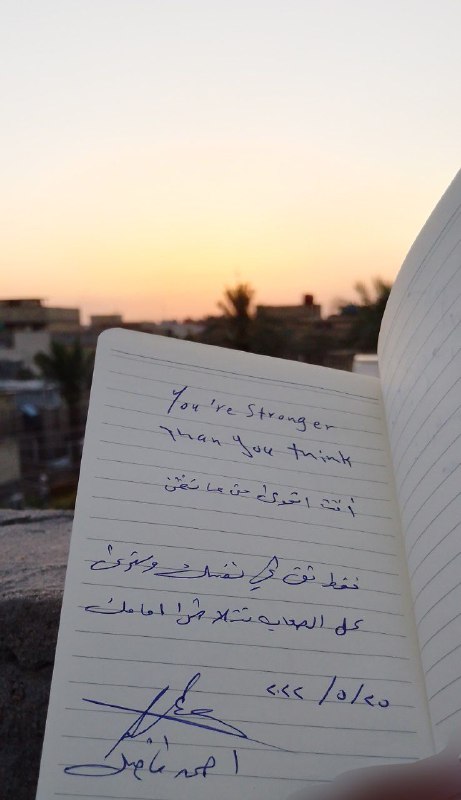 You're Stronger
Than you think
أنت اقوى من ما تظن
فقط ثق في نفسك وسترى
كل الصعاب تتلاشى امامك
٢٠٢٢/٥/٢٥
احمد فاضل